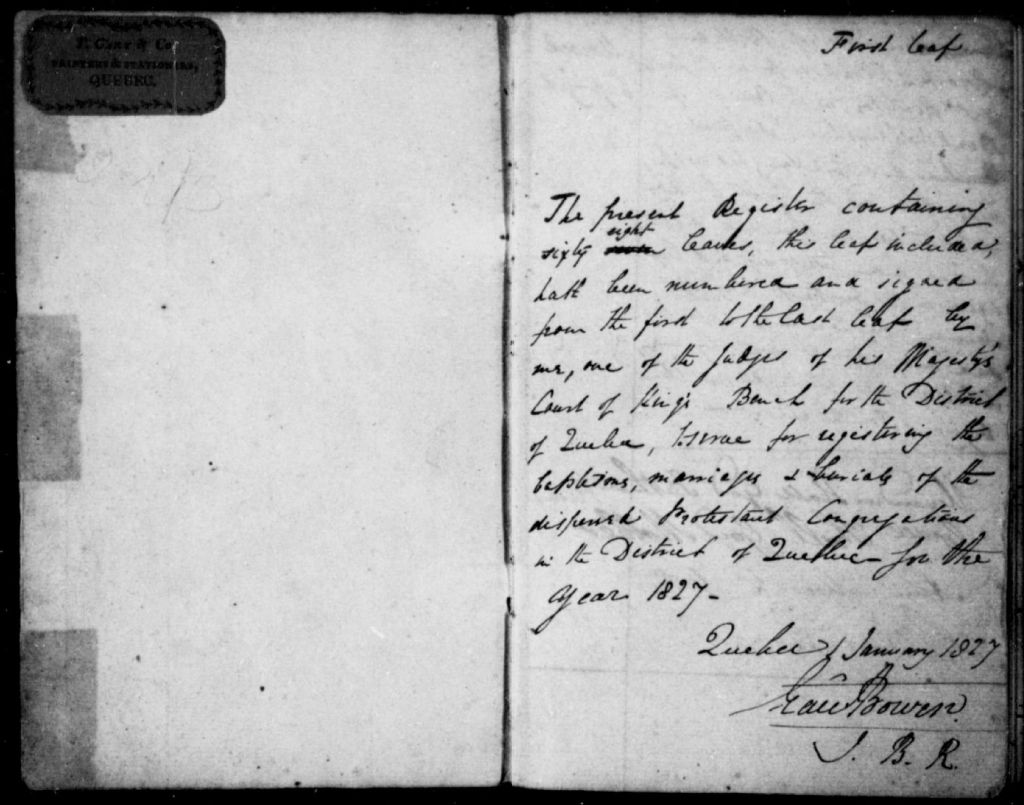 T. Cary & Co
PRINTERS & STATIONERS,
QUEBEC.
First leaf
The present Register containing
sixty eight seven leaves, this leaf included,
hath been numbered and signed
from the first to the last leaf by
me, one of the Judges of his Majesty's
Court of King's Bench for the District
of Quebec, to serve for registering the
baptisms, marriages & burials of the
dispersed Protestant Congregations
in the District of Quebec for the
year 1827-
Quebec 1 January 1827
Bowen
J. B. R.